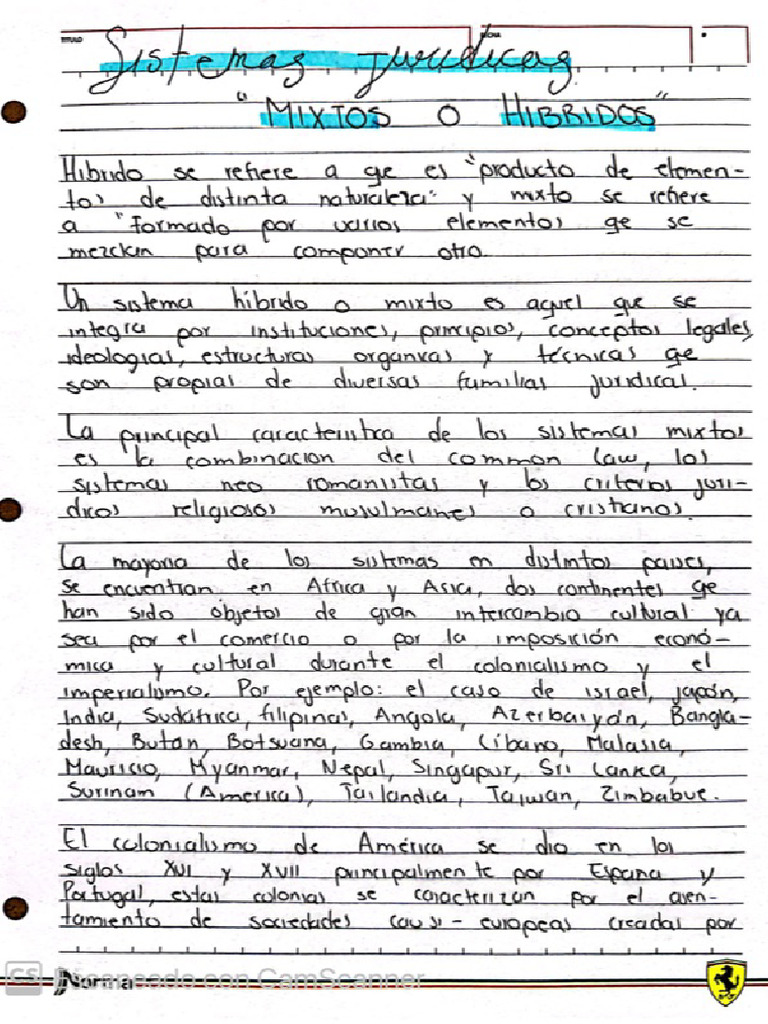 TITULO
FECHA
Sistemas jurídicas
"MIXTOS O HIBRIDOS"
Hibrido se refiere a qe es "producto de elemen-
tos de distinta naturaleza" y mixto se refiere
a "formado por varios elementos qe se
mezclan para componer otro.
Un sistema híbrido o mixto es aquel que se
integra por instituciones, principios, conceptos legales,
ideologias, estructuras organicas y técnicas qe
son propias de diversas familias juridicas.
La principal caracteristica de los sistemas mixtos
es la combinacion del common law, los
sistemas neo romanistas y los criterios juri-
dicos religiosos musulmanes o cristianos.
La mayoria de los sistemas en distintos paises,
se encuentran en Africa y Asia, dos continentes qe
han sido objetos de gran intercambio cultural ya
sea por el comercio o por la imposición econó-
mica y cultural durante el colonialismo y el
imperialismo. Por ejemplo: el caso de israel, japón,
India, Sudafrica, filipinas, Angola, Azerbaiyán, Bangla-
desh, Butan, Botswana, Gambia, Líbano, Malasia,
Mauricio, Myanmar, Nepal, Singapur, Sri Lanka,
Surinam (America), Tailandia, Taiwan, Zimbabue.
El colonialismo de América se dio en los
siglos XVI y XVII principalmente por España y
Portugal, estas colonias se caracterizan por el asen-
tamiento de sociedades causi-europeas creadas por
CS Escaneado con CamScanner
Norma